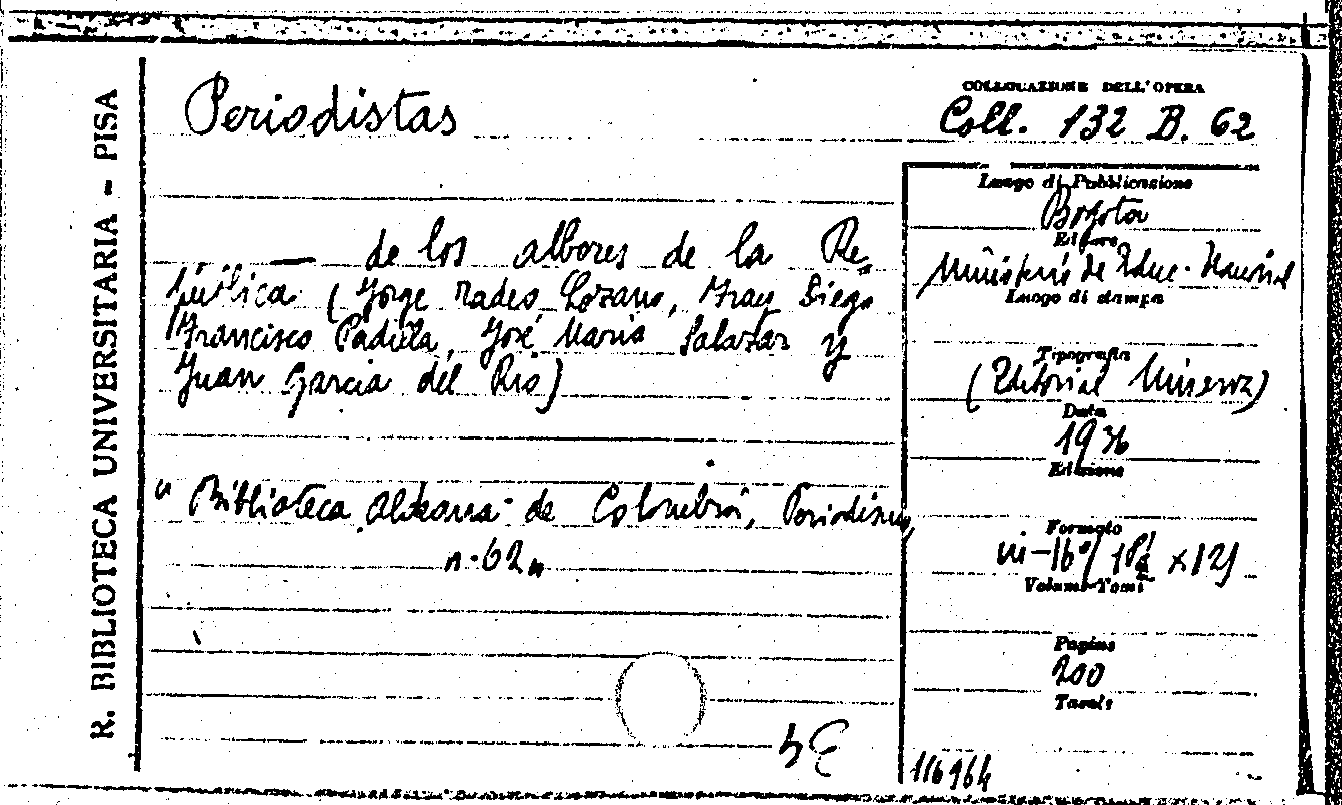 R. BIBLIOTECA UNIVERSITARIA - PISA
Periodistas
COLLOCAZIONE DELL'OPERA
Coll. 132 B. 62
— de los albores de la Re-
pública (Jorge Tadeo Lozano, Fray Diego
Francisco Padilla, José Maria Salazar y
Juan Garcia del Rio)
" Biblioteca Aldeana de Colombia, Periodismo,
n. 62 "
Luogo di Pubblicazione
Bogota
Editore
Ministerio de Educ. Nacional
Luogo di stampa
Tipografia
(Editorial Minerva)
Data
1936
Edizione
Formato
in-16°
x 12)
Volumi-Tomi
Pagine
200
Tavole
116964